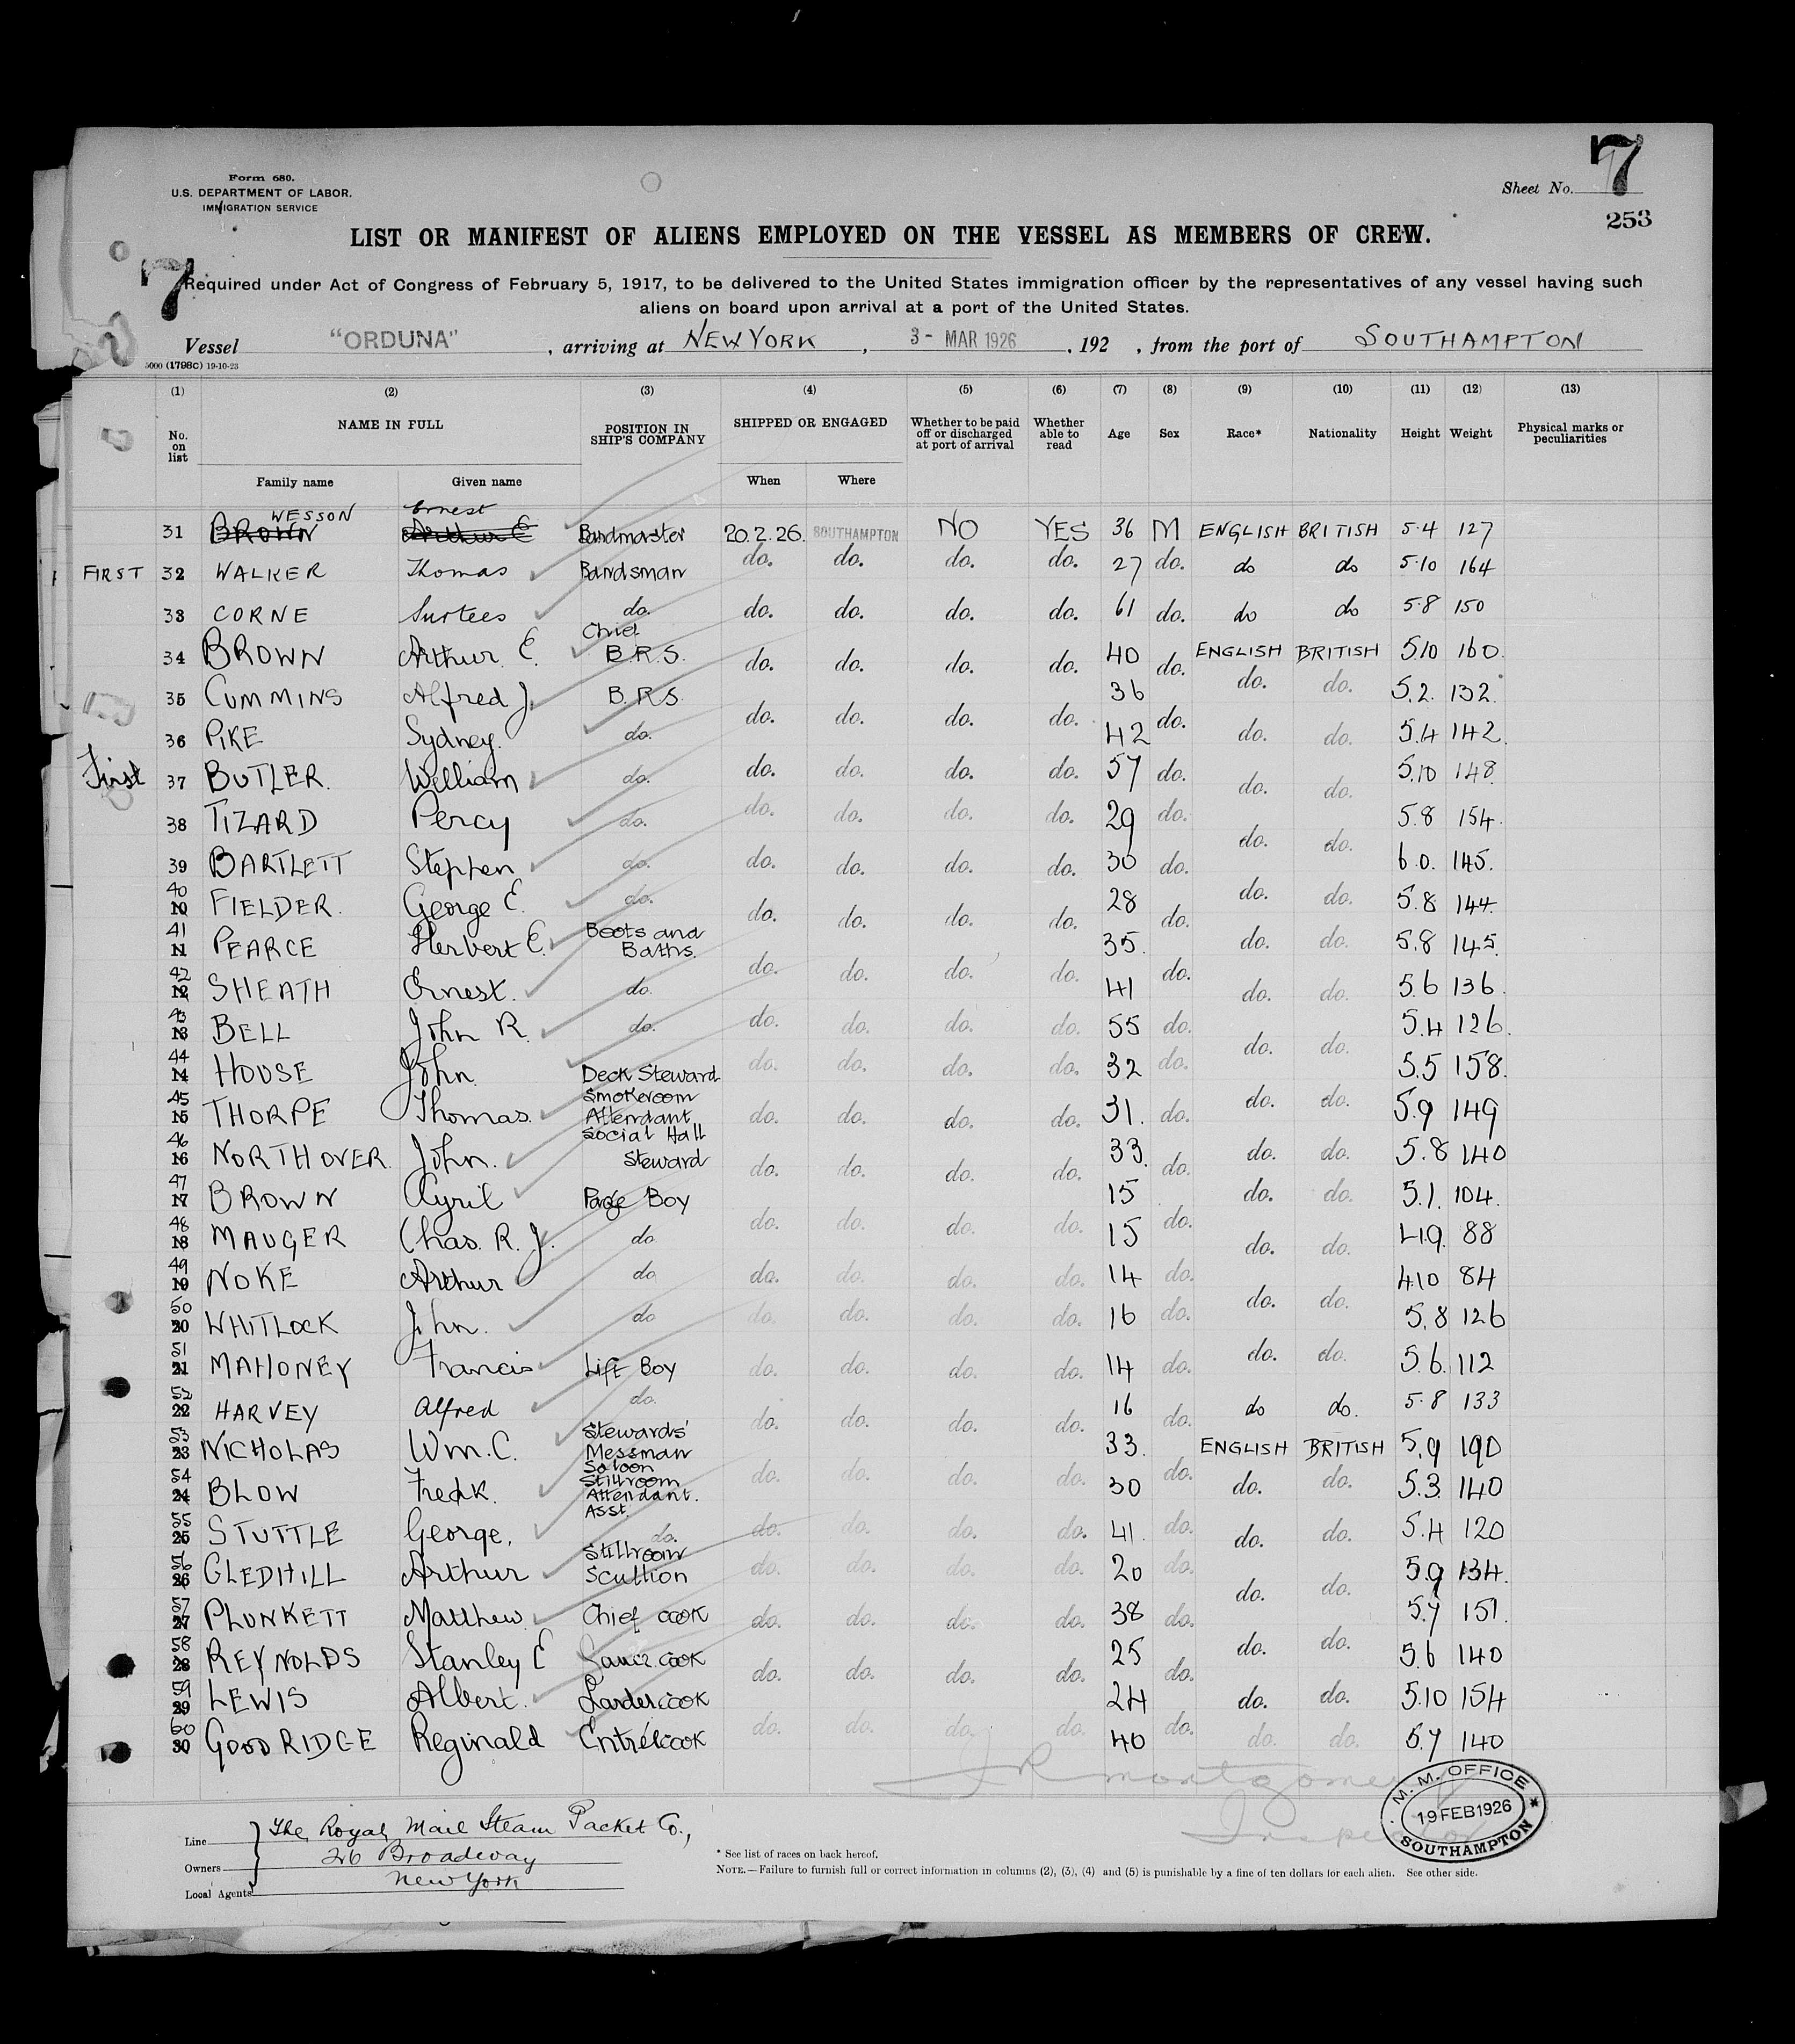 Form 680.
U.S. DEPARTMENT OF LABOR.
IMMIGRATION SERVICE
Sheet No. 7
253
LIST OR MANIFEST OF ALIENS EMPLOYED ON THE VESSEL AS MEMBERS OF CREW.
7
Required under Act of Congress of February 5, 1917, to be delivered to the United States immigration officer by the representatives of any vessel having such
aliens on board upon arrival at a port of the United States.
Vessel "ORDUNA", arriving at NEW YORK, 3- MAR 1926, 192 , from the port of SOUTHAMPTON
5000 (1798C) 19-10-23
(1) (2) (3) (4) (5) (6) (7) (8) (9) (10) (11) (12) (13)
No. on list NAME IN FULL POSITION IN SHIP'S COMPANY SHIPPED OR ENGAGED Whether to be paid off or discharged at port of arrival Whether able to read Age Sex Race* Nationality Height Weight Physical marks or peculiarities
Family name Given name When Where
WESSON Ernest
31 BROWN Arthur E Bandmaster 20.2.26. SOUTHAMPTON NO YES 36 M ENGLISH BRITISH 5.4 127
FIRST 32 WALKER Thomas Bandsman do. do. do. do. 27 do. do do 5.10 164
33 CORNE Surtees do. do. do. do. do. 61 do. do do 5.8 150
34 BROWN Arthur E. Chief B.R.S. do. do. do. do. 40 do. ENGLISH BRITISH 5.10 160.
35 CUMMINS Alfred J. B.R.S. 36 do. do. 5.2. 132.
36 PIKE Sydney. do. do. do. do. do. 42 do. do. do. 5.4 142.
First 37 BUTLER. William do. do. do. do. do. 57 do. do. do. 5.10 148.
38 TIZARD Percy do. do. do. do. do. 29 do. do. do. 5.8 154.
39 BARTLETT Stephen do. do. do. do. do. 30 do. do. do. 6.0. 145.
40 10 FIELDER. George E. do. do. do. do. do. 28 do. do. do. 5.8 144.
41 11 PEARCE Herbert E. Boots and Baths. do. do. do. do. 35. do. do. do. 5.8 145.
42 12 SHEATH Ernest. do. do. do. do. do. 41 do. do. do. 5.6 136.
43 13 BELL John R. do. do. do. do. do. 55 do. do. do. 5.4 126.
44 14 HOUSE John Deck Steward do. do. do. do. 32 do. do. do. 5.5 158.
45 15 THORPE Thomas. Smokeroom Attendant do. do. do. do. 31. do. do. do. 5.9 149
46 16 NORTHOVER. John. Social Hall Steward do. do. do. do. 33. do. do. do. 5.8 140
47 17 BROWN Cyril Page Boy 15 do. do. 5.1. 104.
48 18 MAUGER Chas. R. J. do do. do. do. do. 15 do. do. do. 4.9. 88
49 19 NOKE Arthur do do. do. do. do. 14 do. do. do. 4.10 84
50 20 WHITLOCK John. do do. do. do. do. 16 do. do. do. 5.8 126
51 21 MAHONEY Francis Lift Boy do. do. do. do. 14 do. do. do. 5.6. 112
52 22 HARVEY Alfred do. do. do. do. do. 16 do. do do. 5.8 133
53 23 NICHOLAS Wm. C. Stewards' Messman 33. ENGLISH BRITISH 5.9 190
54 24 BLOW Fredk. Saloon Stillroom Attendant. do. do. do. do. 30 do. do. do. 5.3. 140
55 25 STUTTLE George. Asst. do. do. do. do. do. 41. do. do. do. 5.4 120
56 26 GLEDHILL Arthur Stillroom Scullion do. do. do. do. 20 do. do. do. 5.9 134.
57 27 PLUNKETT Matthew. Chief COOK do. do. do. do. 38 do. 5.7 151.
58 28 REYNOLDS Stanley E Sauce COOK do. do. do. do. 25 do. do. do. 5.6 140
59 29 LEWIS Albert. Larder COOK 24 do. do. 5.10 154
60 30 GOODRIDGE Reginald Entrée COOK do. do. do. do. 40 do. do. do. 5.7 140
J R Montgomery
Inspector
M. M. OFFICE
19 FEB 1926
SOUTHAMPTON
Line
Owners
Local Agents
The Royal Mail Steam Packet Co.,
26 Broadway
New York
* See list of races on back hereof.
NOTE.—Failure to furnish full or correct information in columns (2), (3), (4) and (5) is punishable by a fine of ten dollars for each alien. See other side.